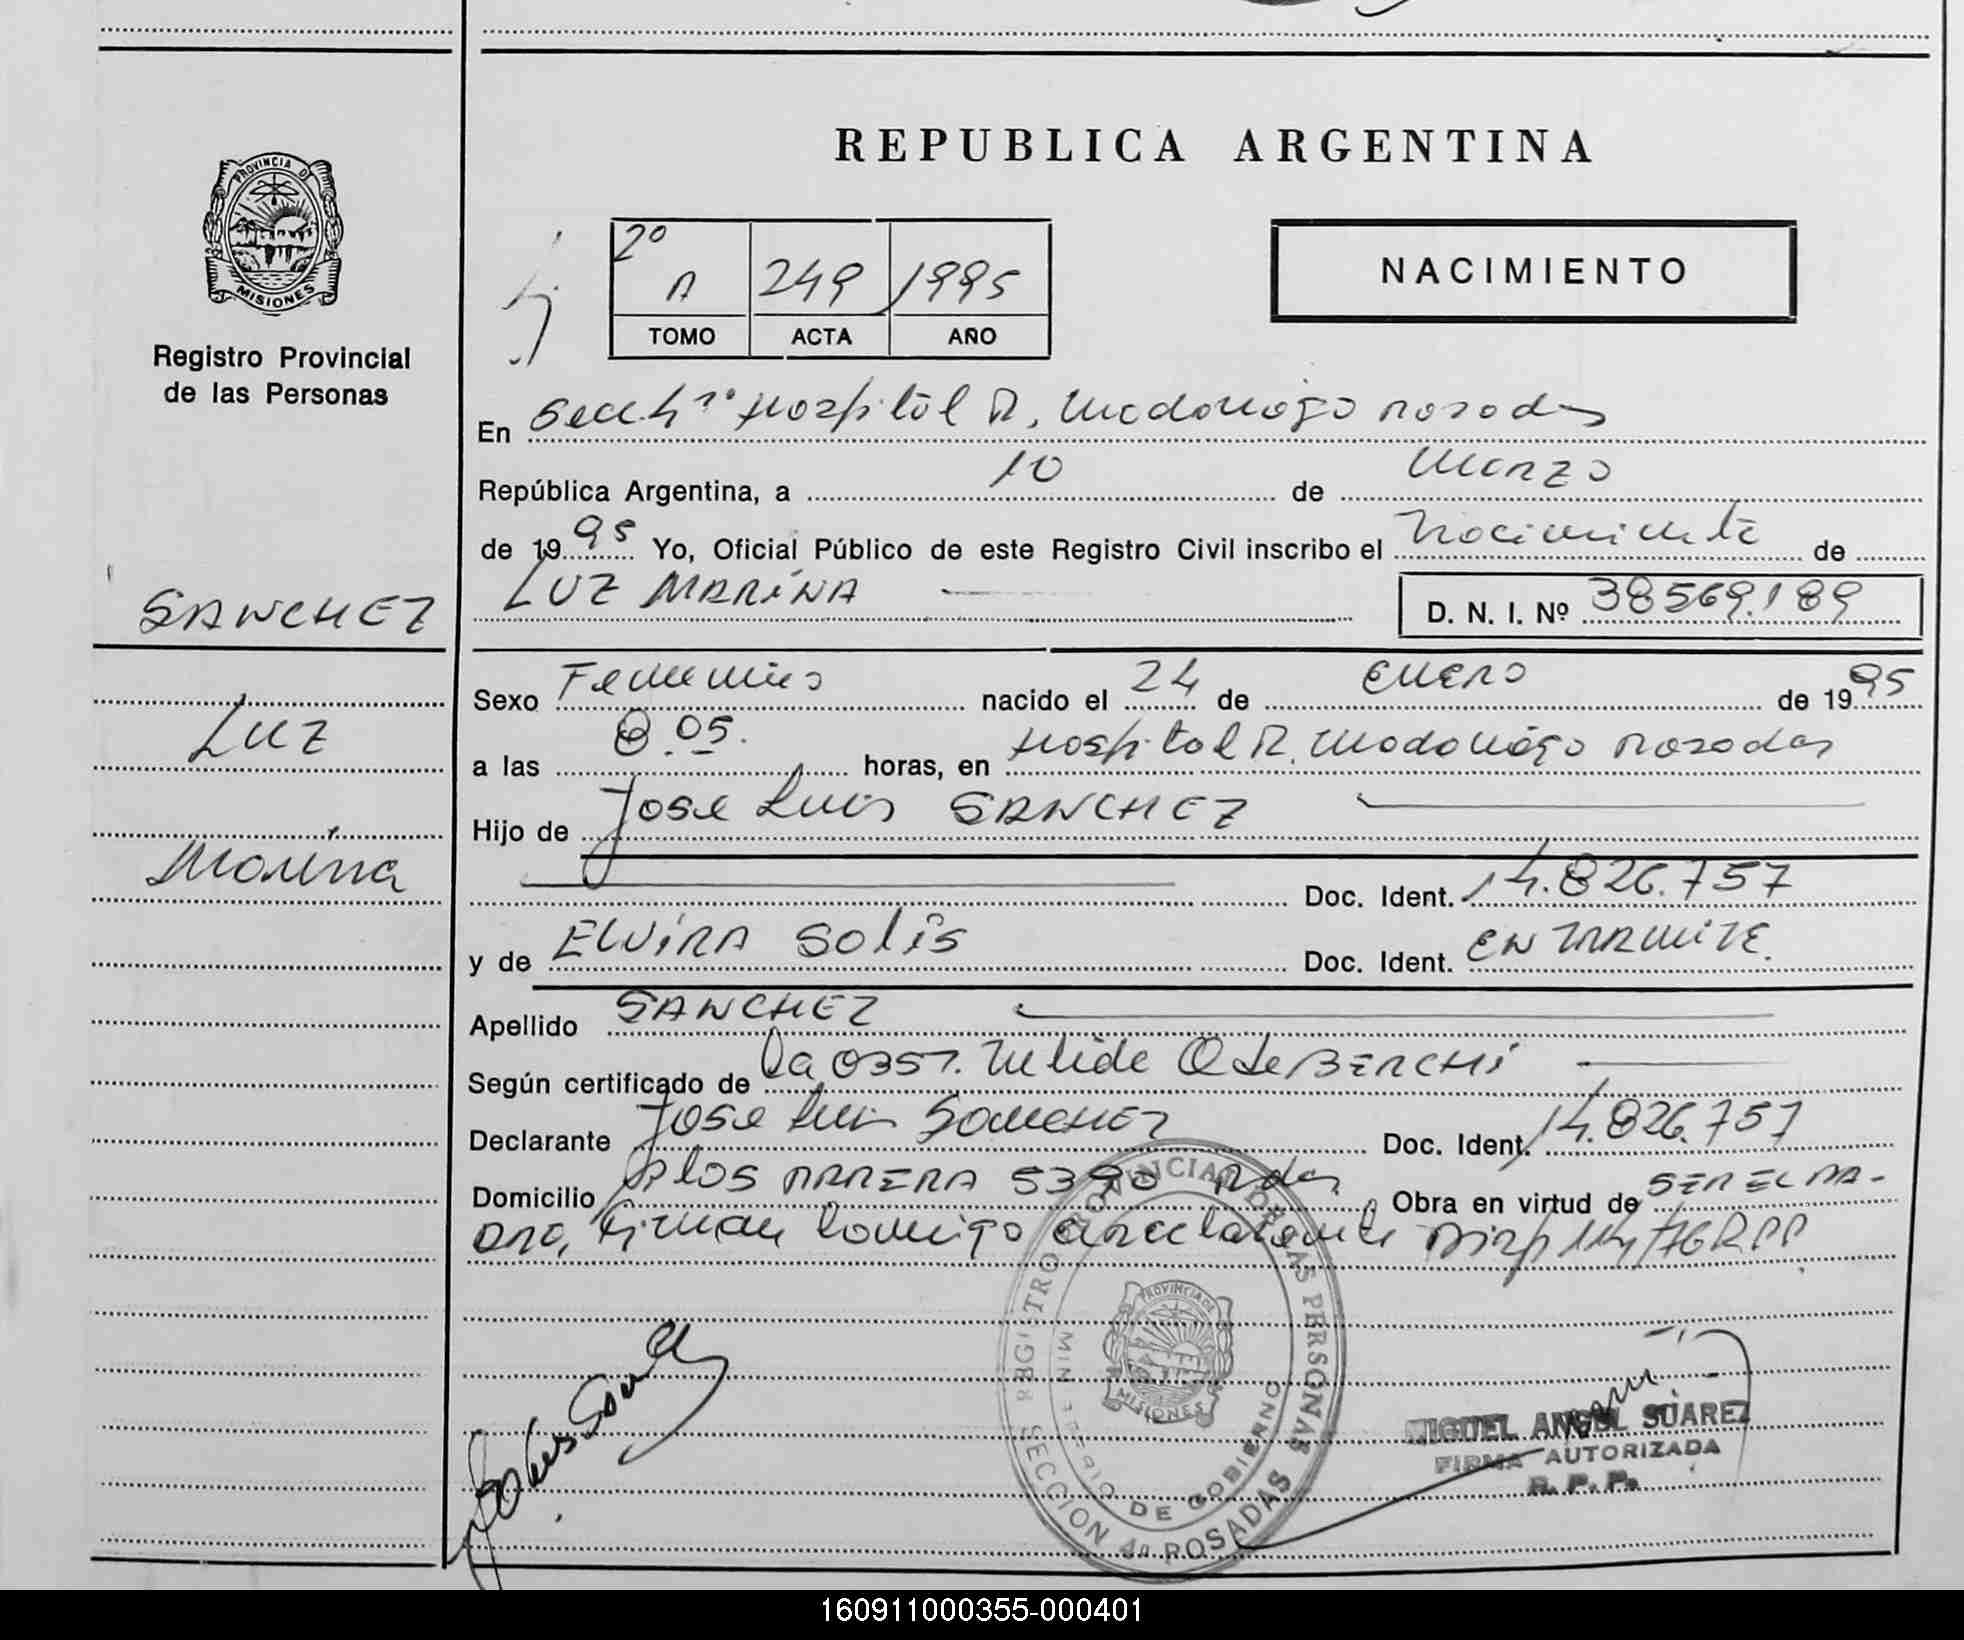 REPUBLICA ARGENTINA
PROVINCIA D
MISIONES
Registro Provincial
de las Personas
2º
A 249 1995
TOMO ACTA AÑO
NACIMIENTO
En Secc. 4ª Hospital R. Madariaga Posadas
República Argentina, a 10 de Marzo
de 1995 Yo, Oficial Público de este Registro Civil inscribo el Nacimiento de
SANCHEZ
LUZ MARINA
D. N. I. Nº 38569.189
Sexo Femenino nacido el 24 de Enero de 1995
Luz
a las 8.05. horas, en Hospital R. Madariaga Posadas
Hijo de Jose Luis SANCHEZ
Marina
Doc. Ident. 14.826.757
y de ELVIRA SOLIS Doc. Ident. EN TRAMITE.
Apellido SANCHEZ
Según certificado de La Obst. Nelide
Declarante Jose Luis Sanchez Doc. Ident. 14.826.757
Domicilio 5390 Pdas Obra en virtud de SER EL PA-
DRE, Firman conmigo declarante
REGISTRO PROVINCIAL DE LAS PERSONAS
MINISTERIO DE GOBIERNO
PROVINCIA DE
MISIONES
SECCION 4ª POSADAS
MIGUEL ANGEL SUAREZ
FIRMA AUTORIZADA
R. P. P.
160911000355-000401